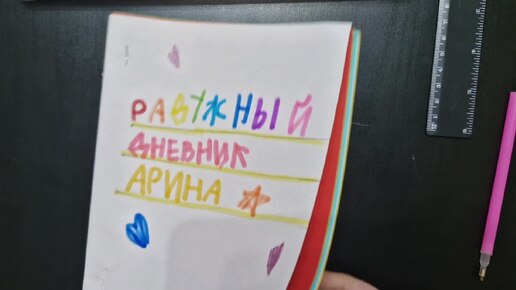 РАДУЖНЫЙ
ДНЕВНИК
АРИНА